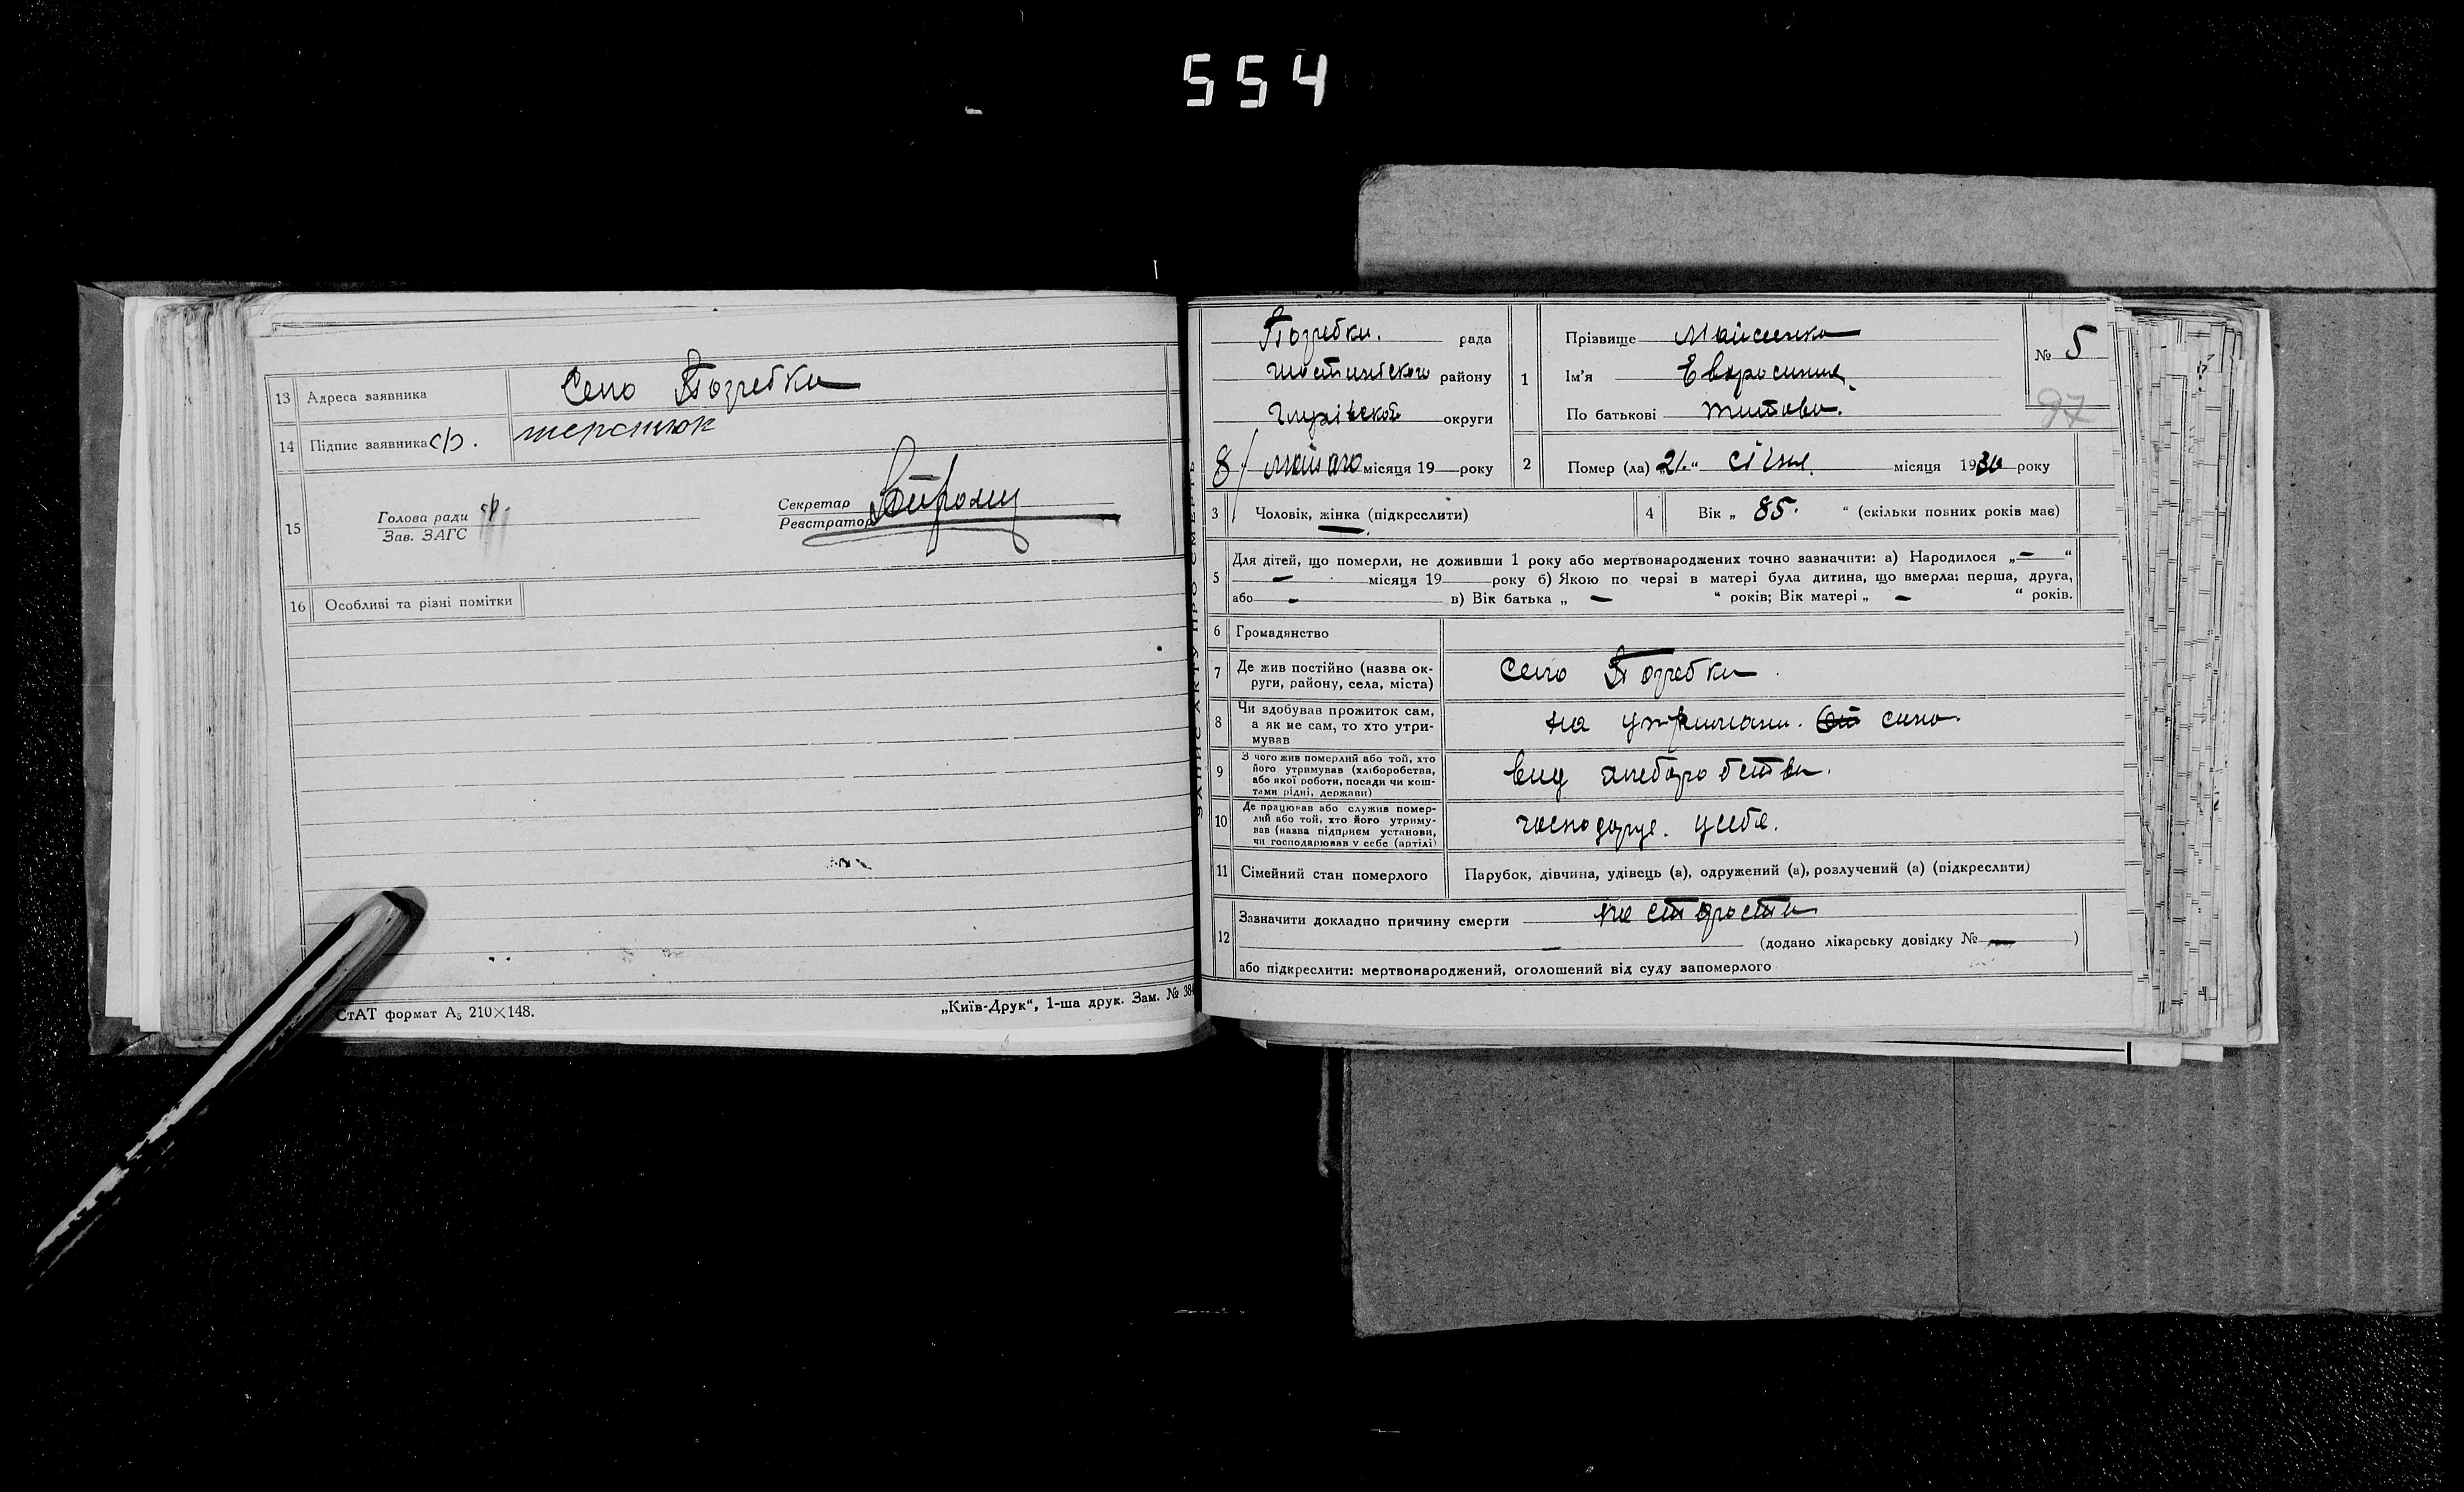 554
13 Адреса заявника Село Погребки
14 Підпис заявника с/р.
15 Голова ради с/р.
Зав. ЗАГС
Секретар
Реєстратор
16 Особливі та різні помітки
СтАТ формат А₅ 210×148.
„Київ-Друк“, 1-ша друк. Зам. № 384
ЗАПИС АКТУ ПРО СМЕРТЬ
Погребки. рада
Шостинского району
Глухівской округи
8/ місяця 19 року
1 Прізвище Мойсеенко
Ім'я Евфросиния
По батькові Титовн.
№ 5
97
2 Помер (ла) „21.“ січня. місяця 1930 року
3 Чоловік, жінка (підкреслити)
4 Вік „ 85. “ (скільки повних років має)
5 Для дітей, що померли, не доживши 1 року або мертвонароджених точно зазначити: а) Народилося „ — “
— місяця 19 року б) Якою по черзі в матері була дитина, що вмерла: перша, друга,
або — в) Вік батька „ — “ років; Вік матері „ — “ років.
6 Громадянство
7 Де жив постійно (назва ок-
руги, району, села, міста) Село Погребки
8 Чи здобував прожиток сам,
а як не сам, то хто утри-
мував на утримани. сина.
9 З чого жив померлий або той, хто
його утримував (хліборобства,
або якої роботи, посади чи кош-
тами рідні, держави) вид хлеборобства.
10 Де працював або служив помер-
лий або той, хто його утриму-
вав (назва підприєм установи,
чи господарював у себе (артілі) господарує. усебе.
11 Сімейний стан померлого Парубок, дівчина, удівець (а), одружений (а), розлучений (а) (підкреслити)
12 Зазначити докладно причину смерти по старости
— (додано лікарську довідку № — )
або підкреслити: мертвонароджений, оголошений від суду запомерлого